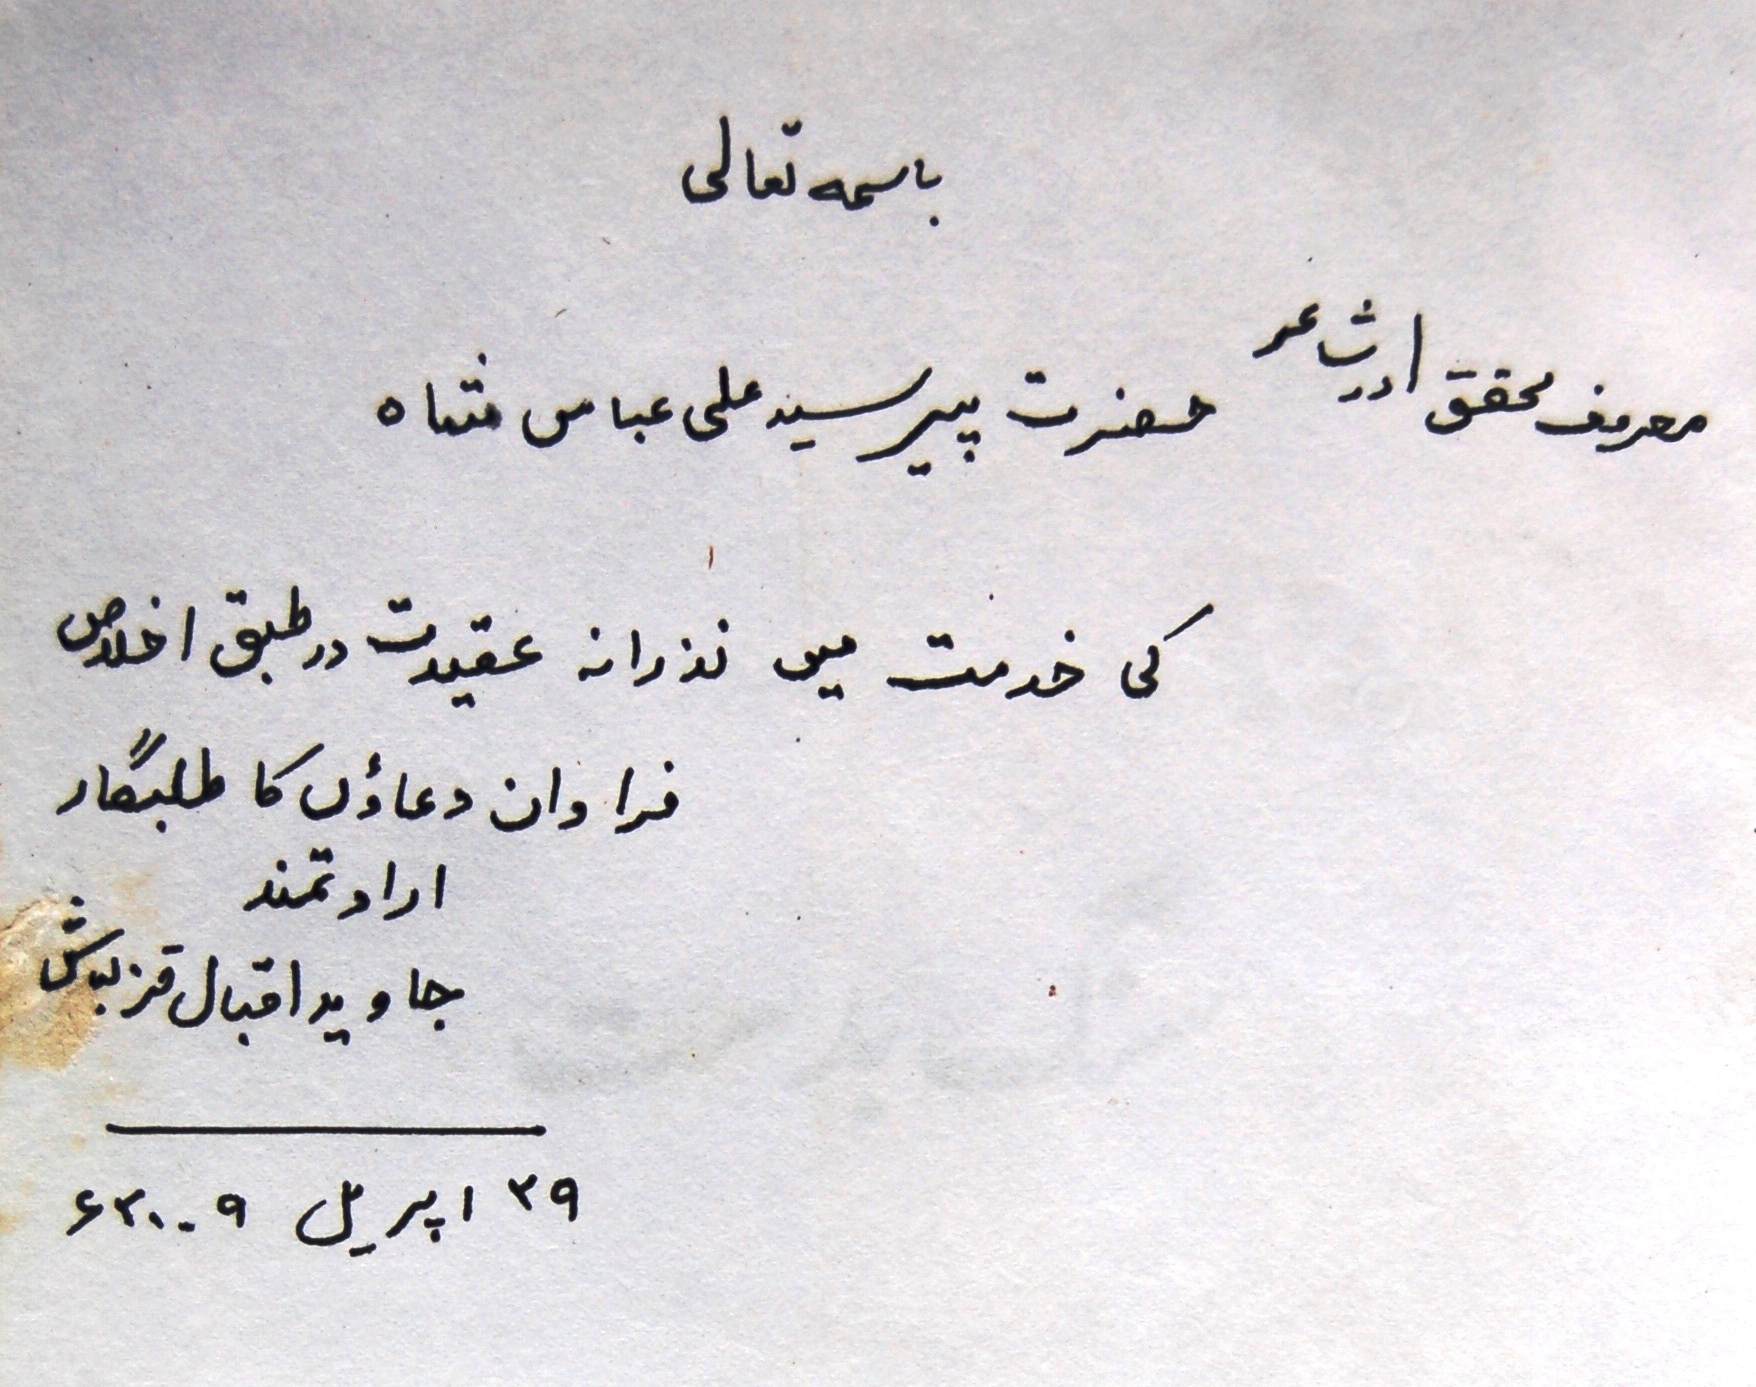 باسمہ تعالی
معروف محقق اور شاعر حضرت پیر سید علی عباس شاہ
کی خدمت میں نذرانہ عقیدت در طبق اخلاص
فراوان دعاؤں کا طلبگار
ارادتمند
جاوید اقبال قزلباش
۲۹ اپریل ۲۰۰۹ء